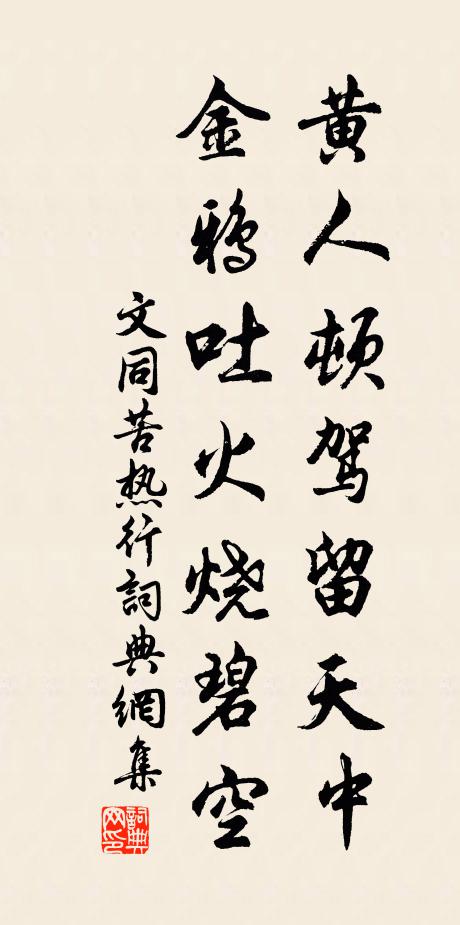 黄人顿驾留天中
金鸦吐火烧碧空
文同苦热行詞典網集
詞典
网印